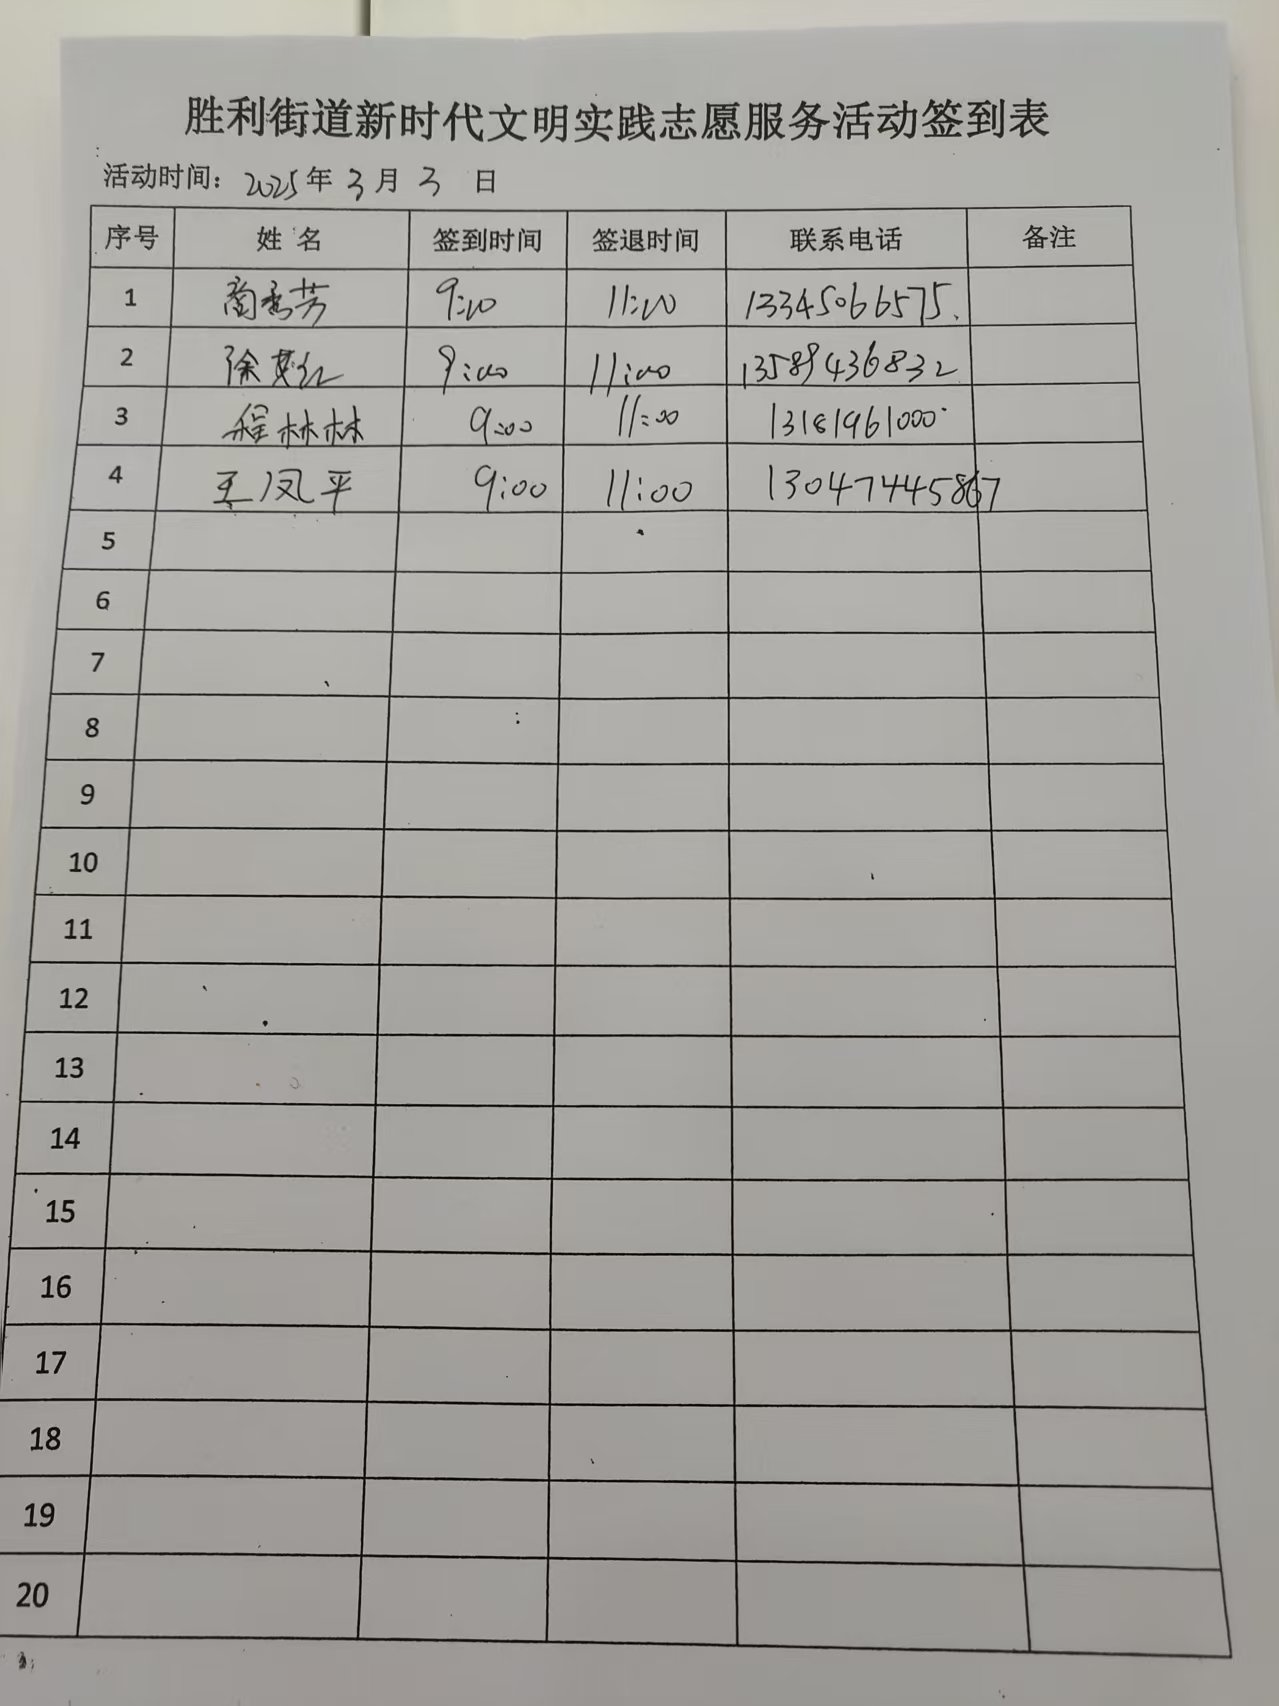 胜利街道新时代文明实践志愿服务活动签到表
活动时间：2025年3月3日
序号 姓名 签到时间 签退时间 联系电话 备注
1 商秀芳 9:00 11:00 13345066575.
2 徐 红 9:00 11:00 13589436832
3 程林林 9:00 11:00 13181961000
4 王凤平 9:00 11:00 13047445867
5
6
7
8
9
10
11
12
13
14
15
16
17
18
19
20